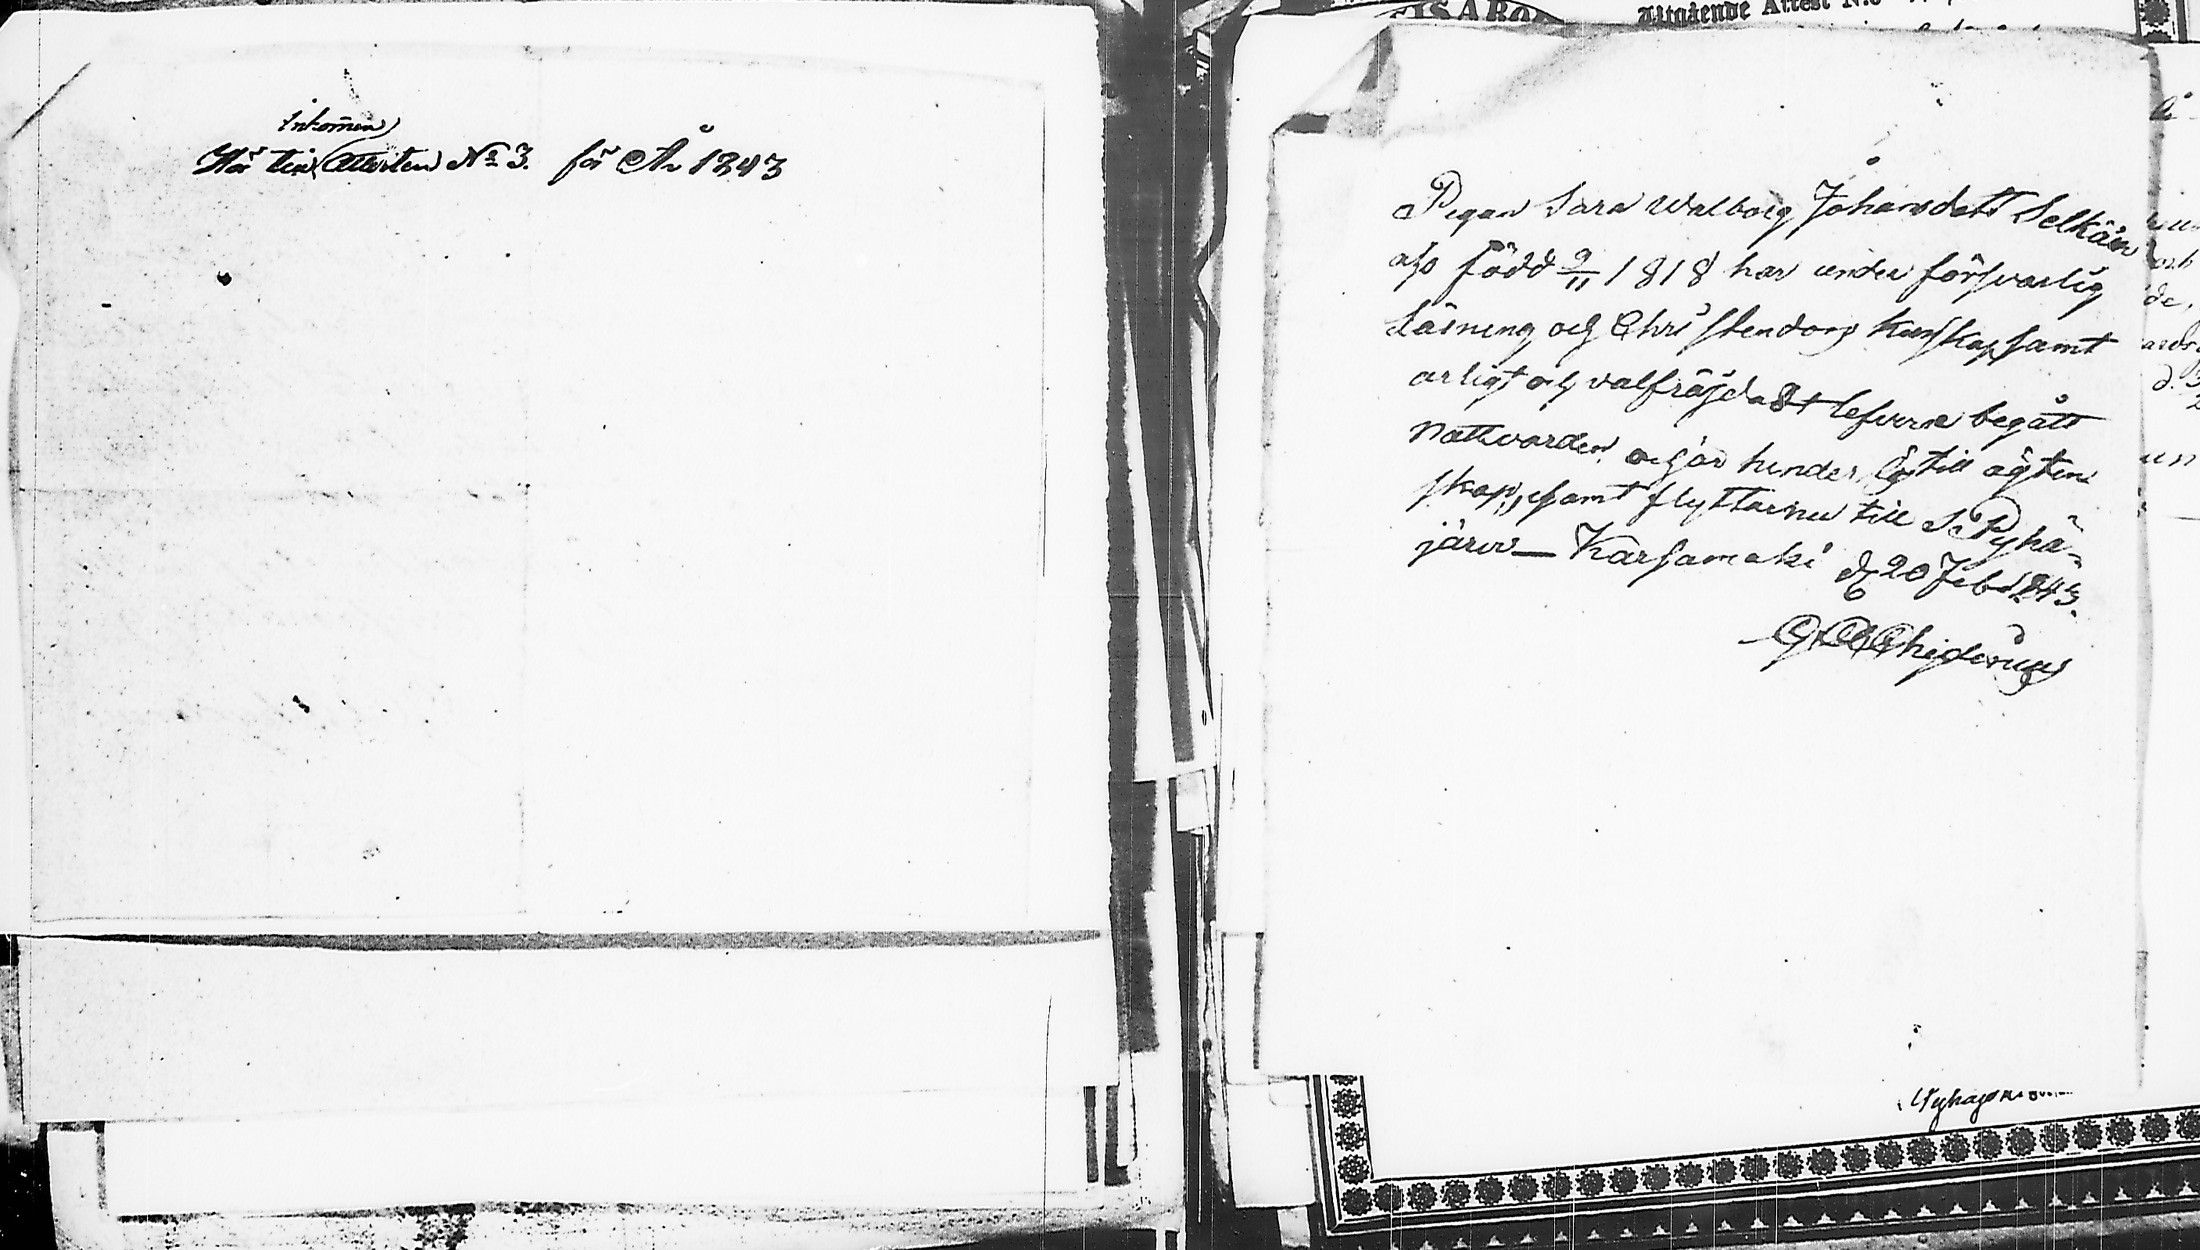 inkomna
Hör till Attesten No 3. för År 1843
Utgående Attest N:o
Pigan Sara Walborg Johansdott Selkäin
aho född 9/11 1818 har under försvarlig
Läsning och Christendoms Kunskap samt
ärligt och välfräjdadt lefverne begått
Nattvarden, och är hinderslös till ägten
skap, samt flyttar nu till S. Pyhä-
järvi — Kärsämäki d 20 Feb 1843.